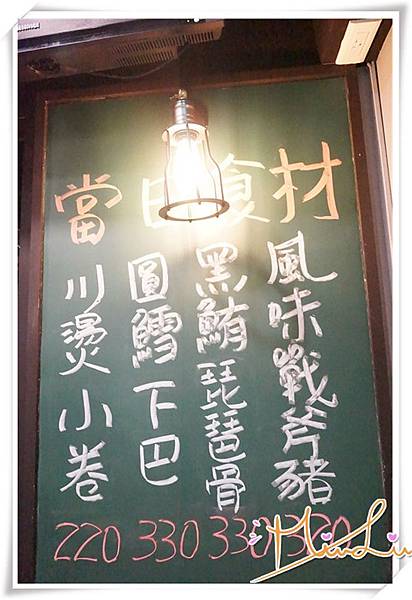 當日食材
風味戰斧豬
黑鮪琵琶骨
圓鱈下巴
川燙小卷
220 330 330 320